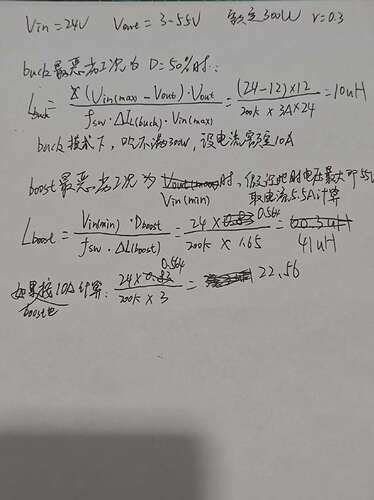 Vin = 24V Vout = 3-55V 额定300W r=0.3
buck最恶劣工况为 D=50%时:
Lbuck = (Vin(max) - Vout)·Vout / fsw·ΔL(buck)·Vin(max) = (24-12)×12 / 200k × 3A×24 = 10uH
buck 模式下，吃不满300W，设电流额定10A
boost最恶劣工况为 Vin(min) 时,
取电流5.5A计算
Lboost = Vin(min)·Dboost / fsw·ΔL(boost) = 24×0.564 / 200k × 1.65 = 41uH
如果按10A计算: 24×0.564 / 200k × 3 = 22.56